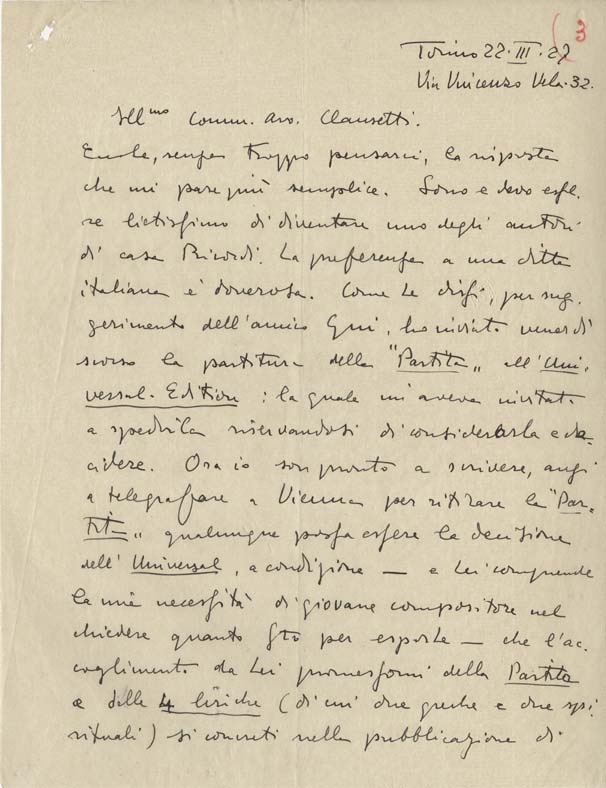 (3
Torino 22·III·27
Via Vincenzo Vela·32.
Ill.mo Comm. Avv. Clausetti.
Eccole, senza troppo pensarci, la risposta
che mi pare più semplice. Sono e devo esse-
re lietissimo di diventare uno degli autori
di casa Ricordi. La preferenza a una ditta
italiana è doverosa. Come Le dissi, per sug-
gerimento dell'amico Gui, ho inviato venerdì
scorso la partitura della "Partita" all'Uni-
versal-Edition: la quale mi aveva invitato
a spedirla riservandosi di considerarla e de-
cidere. Ora io son pronto a scrivere, anzi
a telegrafare a Vienna per ritirare la "Par-
tita" qualunque possa essere la decisione
dell'Universal, a condizione — e Lei comprende
la mia necessità di giovane compositore nel
chiedere quanto sto per esporle — che l'ac-
coglimento da Lei promessomi della Partita
e delle 4 liriche (di cui due greche e due spi-
rituali) si concreti nella pubblicazione di